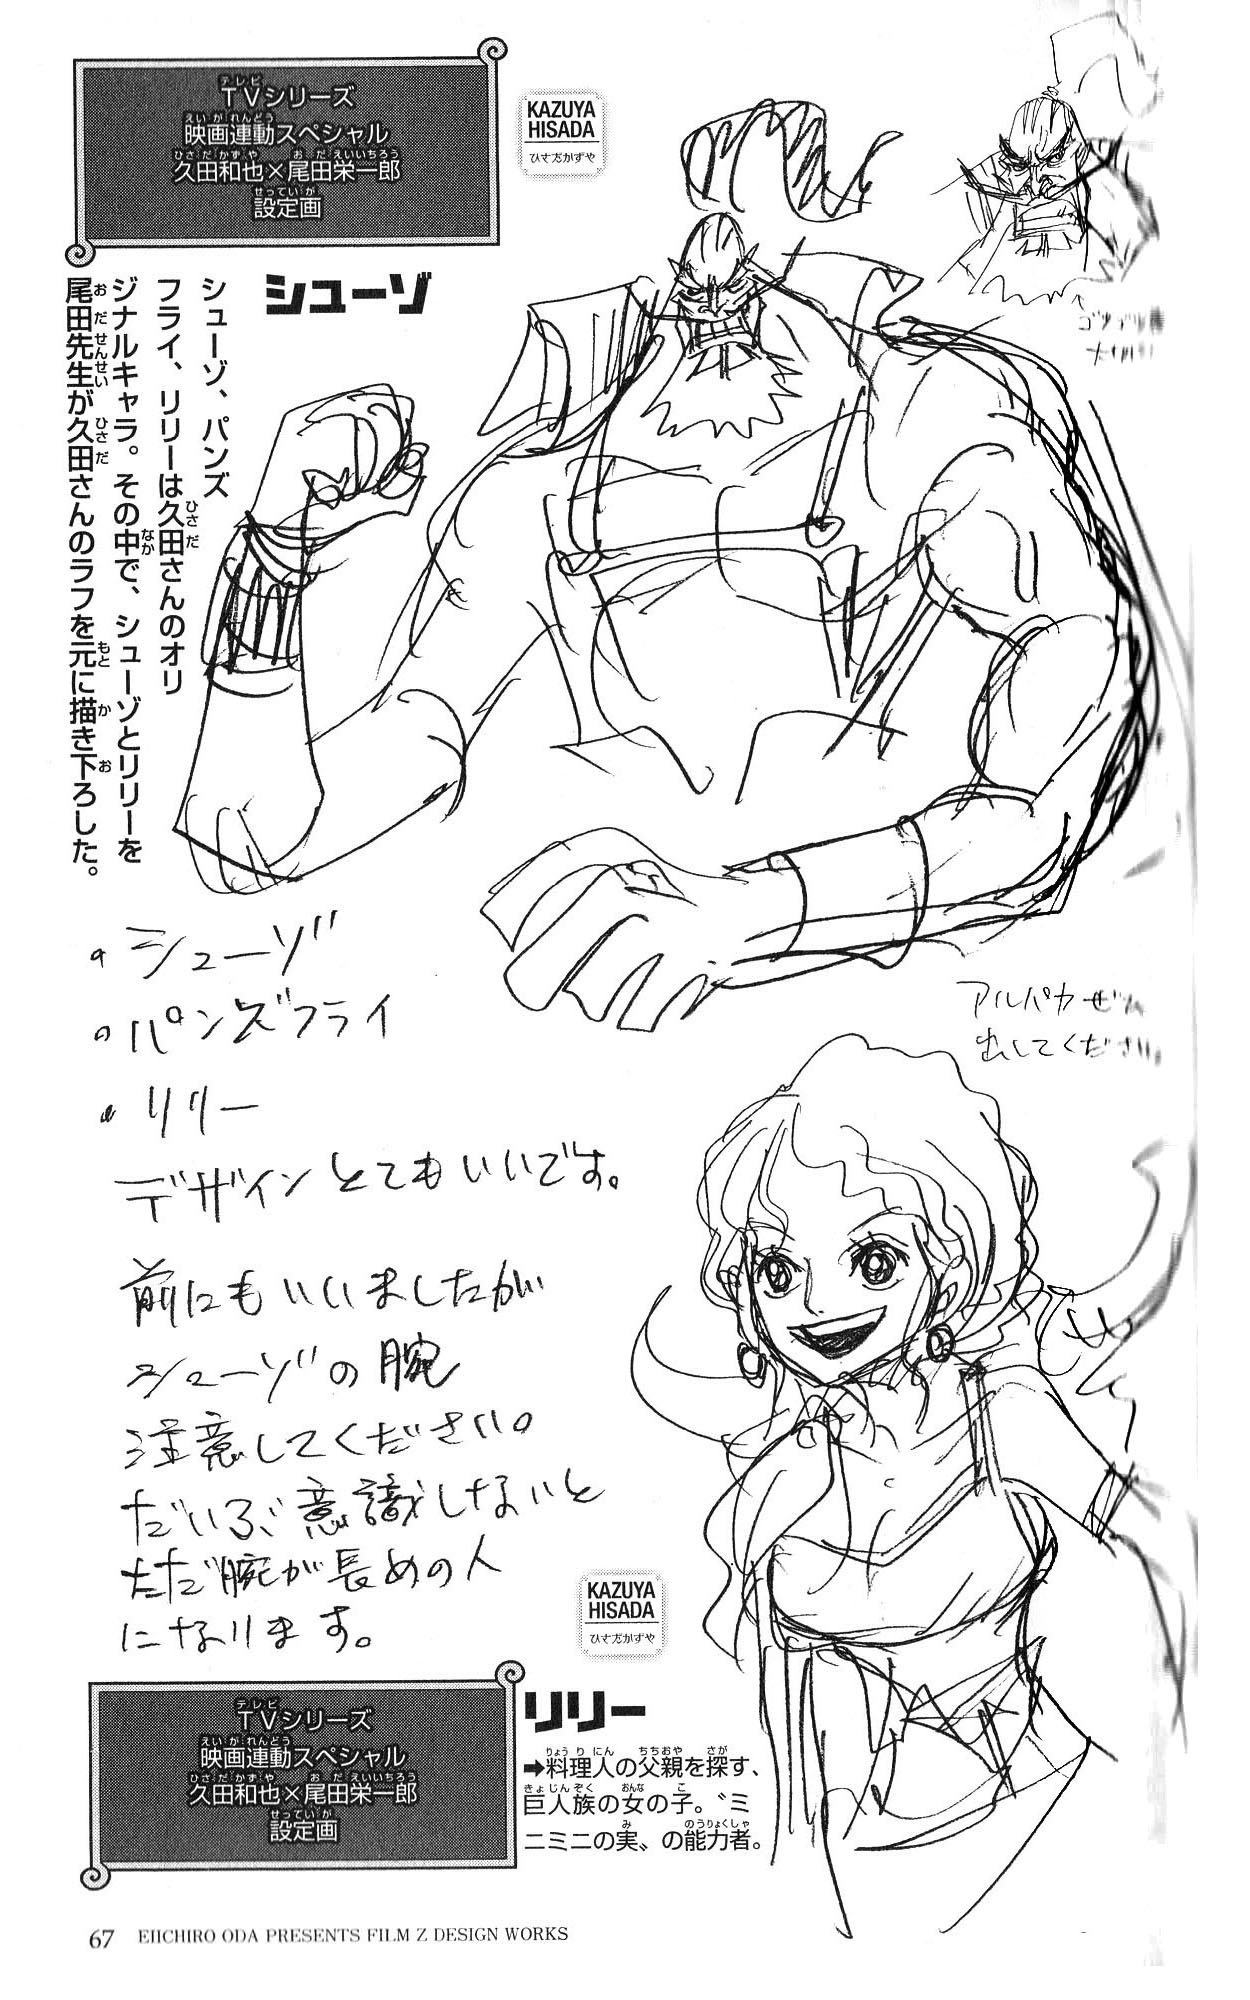 TVシリーズ
映画連動スペシャル
久田和也×尾田栄一郎
設定画
KAZUYA
HISADA
ひさだかずや
シューゾ
シューゾ、パンズ
フライ、リリーは久田さんのオリ
ジナルキャラ。その中で、シューゾとリリーを
尾田先生が久田さんのラフを元に描き下ろした。
・シューゾ
・パンズフライ
・リリー
デザインとてもいいです。
前にもいいましたが
シューゾの腕
注意してください。
だいぶ意識しないと
ただ腕が長めの人
になります。
アルパカぜひ
出してください
KAZUYA
HISADA
ひさだかずや
TVシリーズ
映画連動スペシャル
久田和也×尾田栄一郎
設定画
リリー
➡料理人の父親を探す、
巨人族の女の子。〝ミ
ニミニの実〟の能力者。
67 EIICHIRO ODA PRESENTS FILM Z DESIGN WORKS